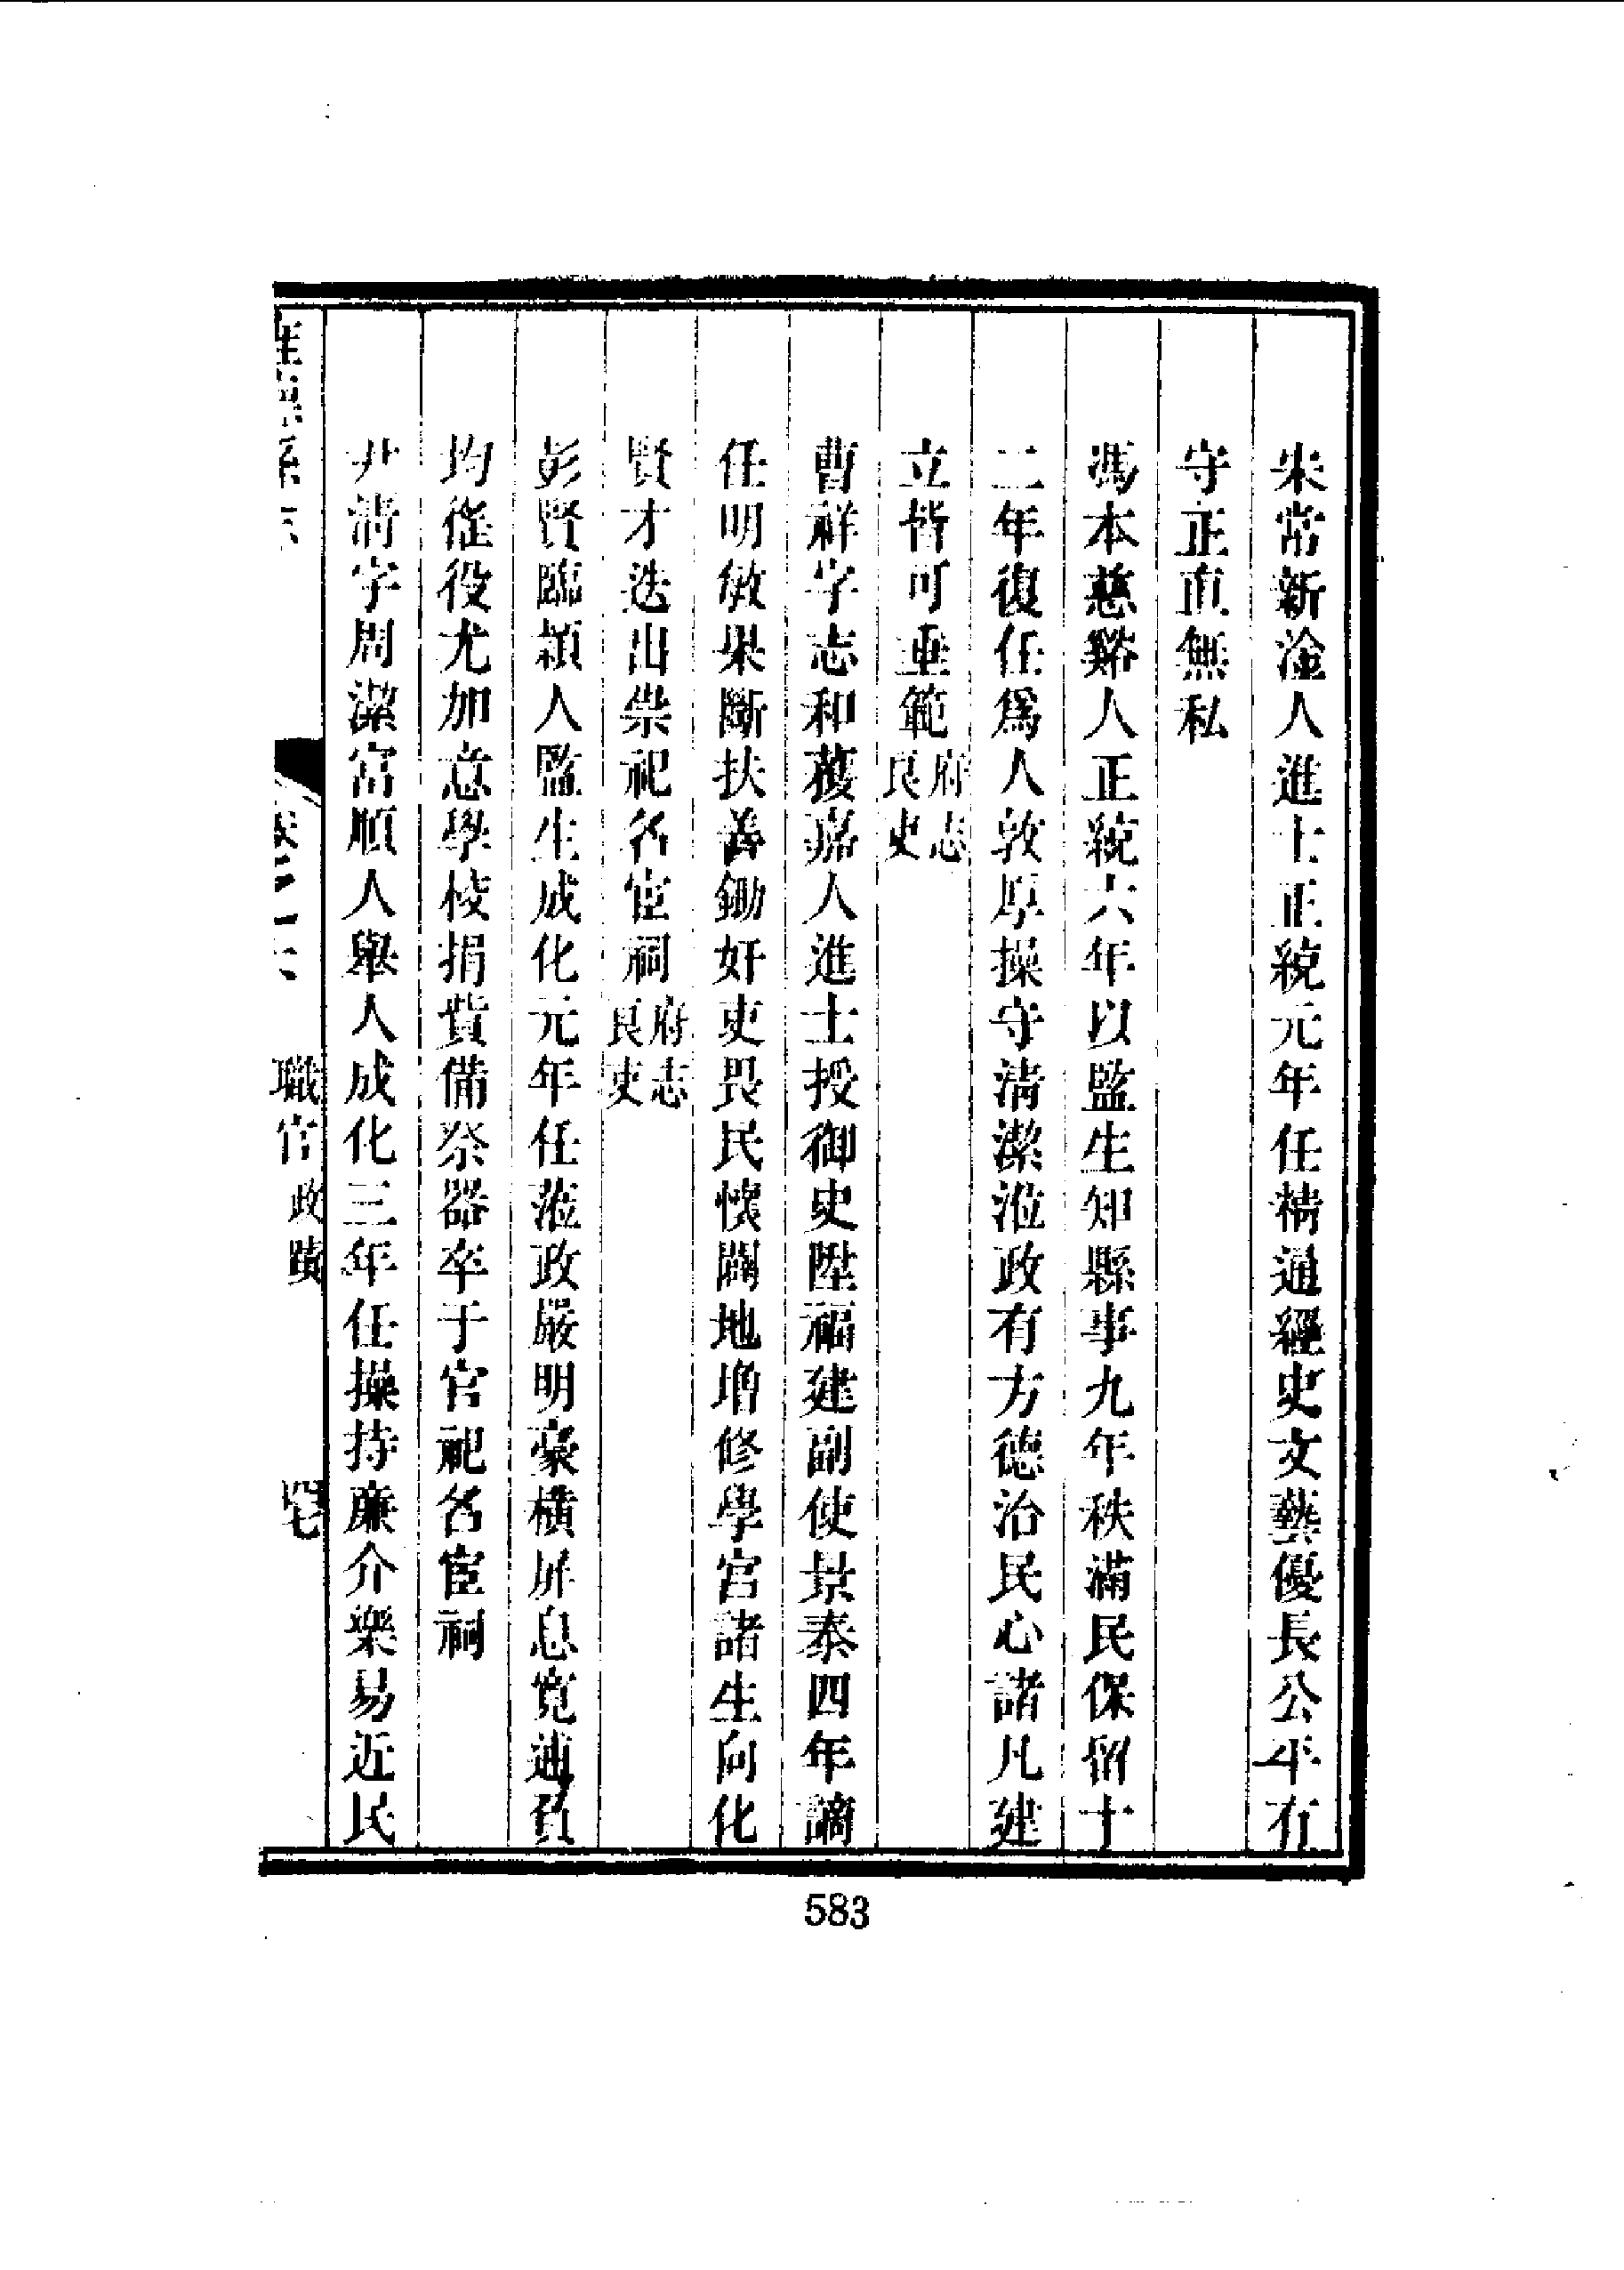 朱常新淦人進士正統元年任精通經史文藝優長公平有
守正直無私
馮本慈谿人正統六年以監生知縣事九年秩滿民保留十
二年復任爲人敦厚操守清潔涖政有方德治民心諸凡建
立皆可垂範府志良吏
曹祥字志和獲嘉人進士授御史陞福建副使景泰四年謫
任明敏果斷扶善鋤奸吏畏民懷闢地增修學宮諸生向化
賢才迭出崇祀名宦祠府志良吏
彭賢臨潁人監生成化元年任蒞政嚴明豪橫屏息寬逋負
均徭役尤加意學校捐貲備祭器卒于官祀名宦祠
尹清字周潔富順人舉人成化三年任操持廉介樂易近民
職官政蹟
583